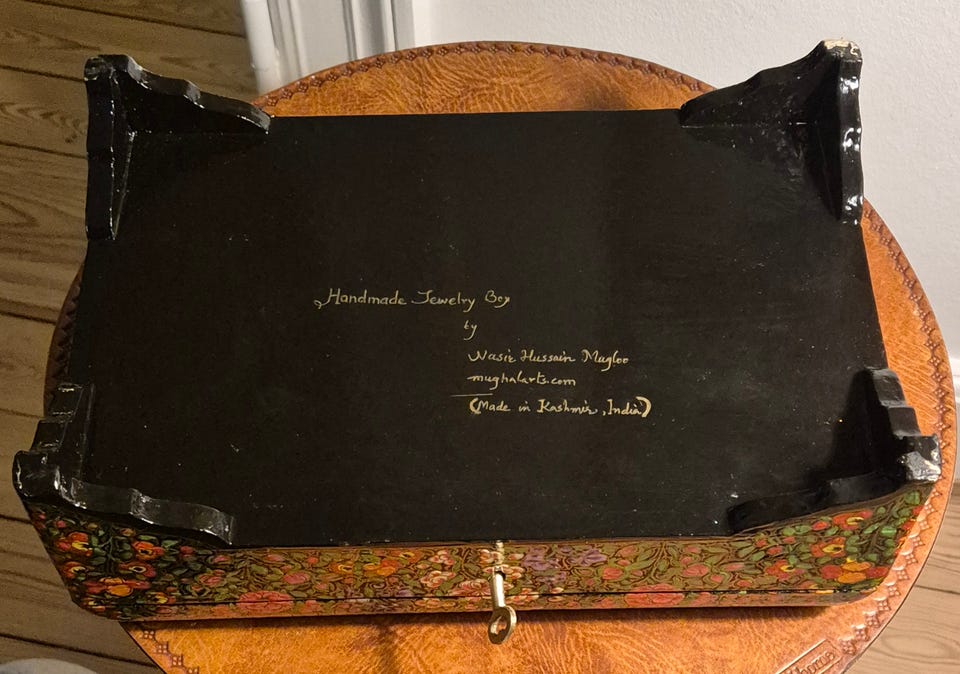 Handmade Jewelry Box
by
Nasir Hussain Mugloo
mughalarts.com
(Made in Kashmir, India)